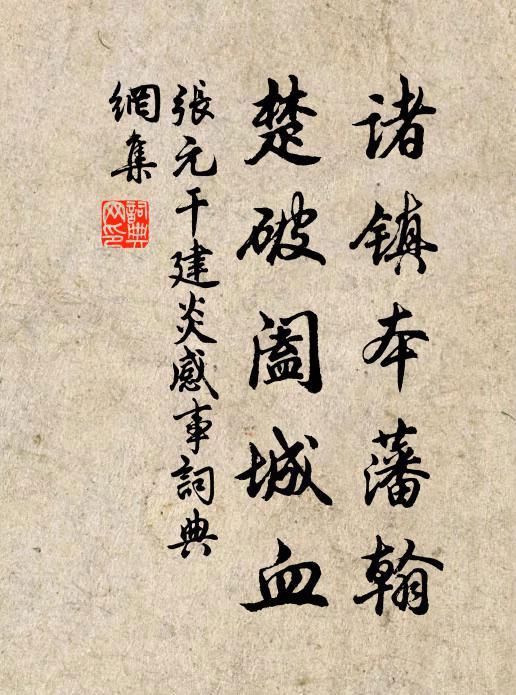 诸镇本藩翰
楚破阖城血
張元干建炎感事詞典
網集
詞典網印